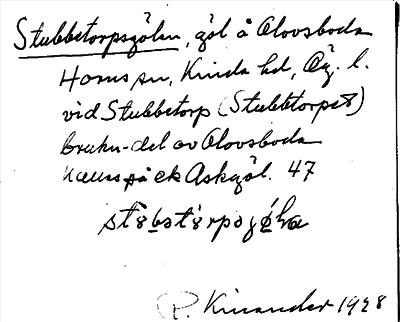 Stubbetorpsgölen, göl å Olovsboda
Horns sn, Kinda hd, Ög. l.
vid Stubbetorp (Stubbtorpet)
bruks-del av Olovsboda
på ek Askgöl. 47
P. Kinander 1928